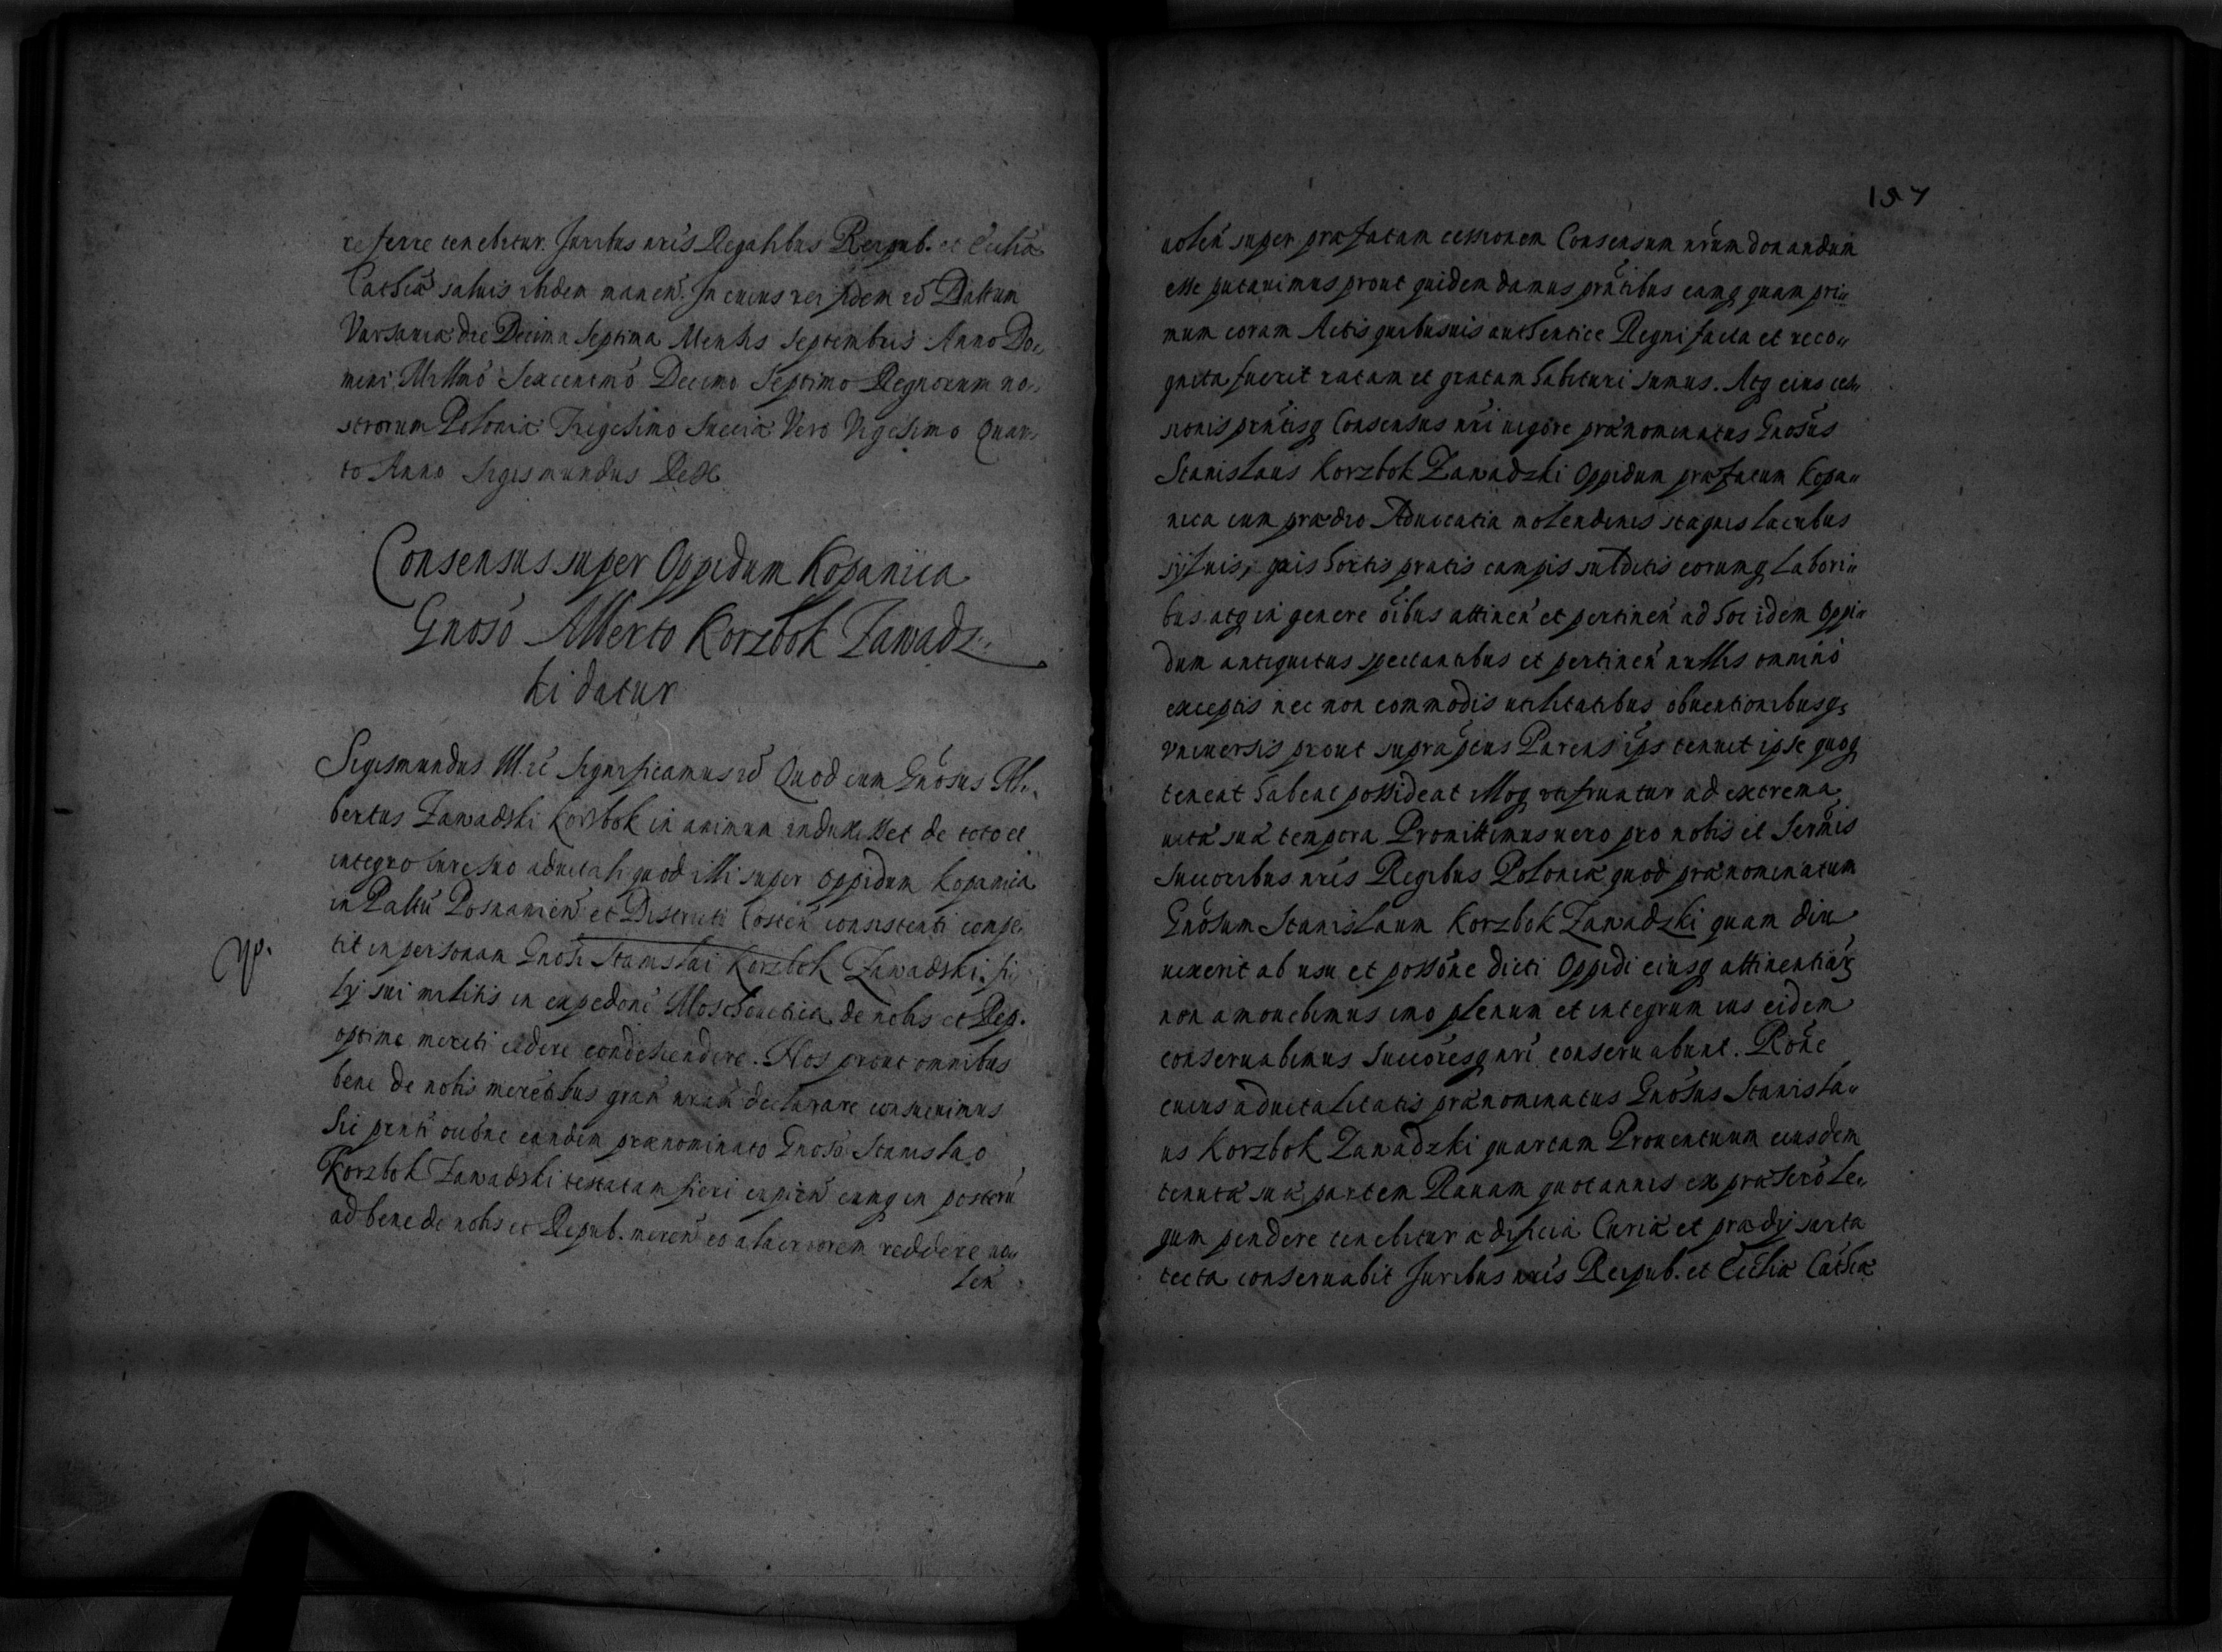 referre tenebitur. Juribus nrĩs Regalibus Reipub. et Eccliæ
Cathcæ saluis ibidem manen̄. In cuius rei fidem rc̄ Dattum
Varsauiæ die Decima Septima Mensis Septembris Anno Do„
mini Millmō Sexcentmō Decimo Septimo Regnorum no„
strorum Poloniæ Trigesimo Sueciæ Vero Vigesimo Quar„
to Anno Sigismundus Rex
Consensus super Oppidum Kopanica
Gnosō Alberto Korzbok Zawadz„
ki datur
Sigismundus III. rc̄ Significamus rc̄ Quod cum Gnōsus Al„
bertus Zawadzki Korzbok in animum induxisset de toto et
integro iure suo aduitali quod illi super Oppidum Kopanica
in Pallū Posnanien̄ et Districtu Costen̄ consistenti compe„
tit in personam Gnosi Stanislai Korzbok Zawadski fi„
lij sui militis in expedonē Moschouitica de nobis et Rep.
optime meriti cedere condescendere. Nos prout omnibus
bene de nobis meretibus gran̄ nram̄ declarare consueuimus
Sic pnti oc̄bne eandem prænominato Gnosō Stanislao
Korzbok Zawadski testatam fieri cupien̄ eumq in posterū
ad bene de nobis et Repub. meren̄ eo alacriorem reddere uo„
len̄
197
uolen̄ super præfatam cessionem Consensum nr̄um donandum
esse putauimus prout quidem damus pnt̄ibus eamq quam pri„
mum coram Actis quibusuis authentice Regni facta et reco„
gnita fuerit ratam et gratam habituri sumus. Atq eius ces„
sionis pnt̄isq Consensus nr̄i uigore prænominatus Gnosūs
Stanislaus Korzbok Zawadzki Oppidum præfatum Kopa„
nica cum prædio Aduocatia molendinis stagnis lacubus
syluis, gais hortis pratis campis subditis eorumq labori„
bus atq in genere oībus attinen̄ et pertinen̄ ad hoc idem Oppi„
dum antiquitus spectantibus et pertinen̄ nullis omnino
exceptis nec non commodis utilitatibus obuentionibusq
vniuersis prout supra ipius Parens ips tenuit ipse quoq
teneat habeat possideat illoq utifruatur ad extrema
uitæ suæ tempora Promittimus uero pro nobis et Sermīs
Succoribus nrīs Regibus Poloniæ quod prænominatum
Gnōsum Stanislaum Korzbok Zawadzki quam diu
uixerit ab usu et possōne dicti Oppidi eiusq attinentiār̄
non amouebimus imo plenum et integrum ius eidem
conseruabimus Succōresq nrī conseruabunt. Rōne
cuius aduitalitatis prænominatus Gnōsus Stanisla„
us Korzbok Zawadzki quartam Prouentuum eiusdem
tenutæ suæ partem Rauam quotannis ex præscrō le„
gum pendere tenebitur ædificia Curiæ et prædij sarta
tecta conseruabit Juribus nrīs Reipub. et Eccliæ Cathcæ